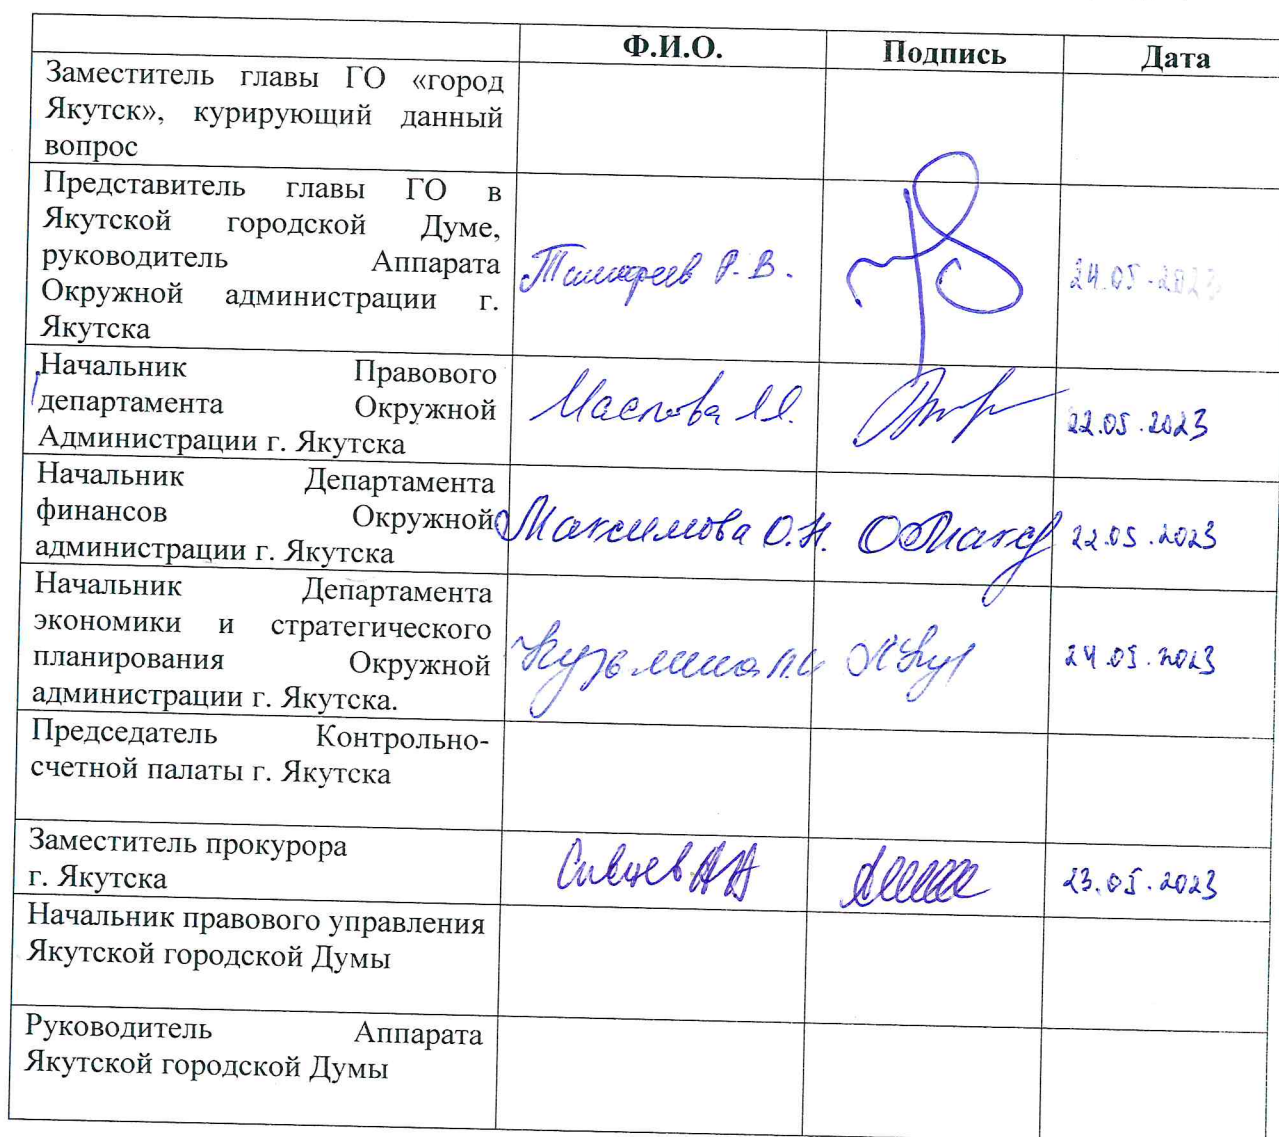 Ф.И.О. Подпись Дата
Заместитель главы ГО «город
Якутск», курирующий данный
вопрос
Представитель главы ГО в
Якутской городской Думе,
руководитель Аппарата
Окружной администрации г.
Якутска
Тимофеев Р.В. 24.05.2023
Начальник Правового
департамента Окружной
Администрации г. Якутска
22.05.2023
Начальник Департамента
финансов Окружной
администрации г. Якутска
Максимова О.Н. 22.05.2023
Начальник Департамента
экономики и стратегического
планирования Окружной
администрации г. Якутска.
Кузьмина 24.05.2023
Председатель Контрольно-
счетной палаты г. Якутска
Заместитель прокурора
г. Якутска
Сивцев АА 23.05.2023
Начальник правового управления
Якутской городской Думы
Руководитель Аппарата
Якутской городской Думы